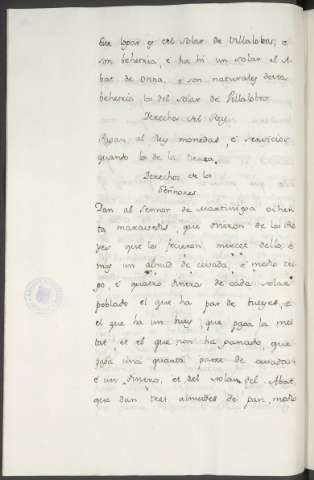 este logar es del solar de Villalobos, e
son behetria, e ha hi un solar el A-
bat de Onna, e son naturales desta
behetria los del solar de Villalobos
Derechos del Rey.
Pagan al Rey monedas, e servicios
quando los de la tierra.
Derechos de los
Señores.
Dan al Sennor de Martiniega ochen-
ta maravedis, que dieron de los Re-
yes que les ficieron mercet dello, e
mas un almud de cevada, e medio tri-
go, e quatro dineros de cada solar
poblado el que ha par de bueyes, e
el que ha un buey, que paga la mei-
tat, et el que non ha ganado, que
paga una quarta parte de cevada
e un dinero, et del solar del Abat,
que dan tres almudes de pan, medio